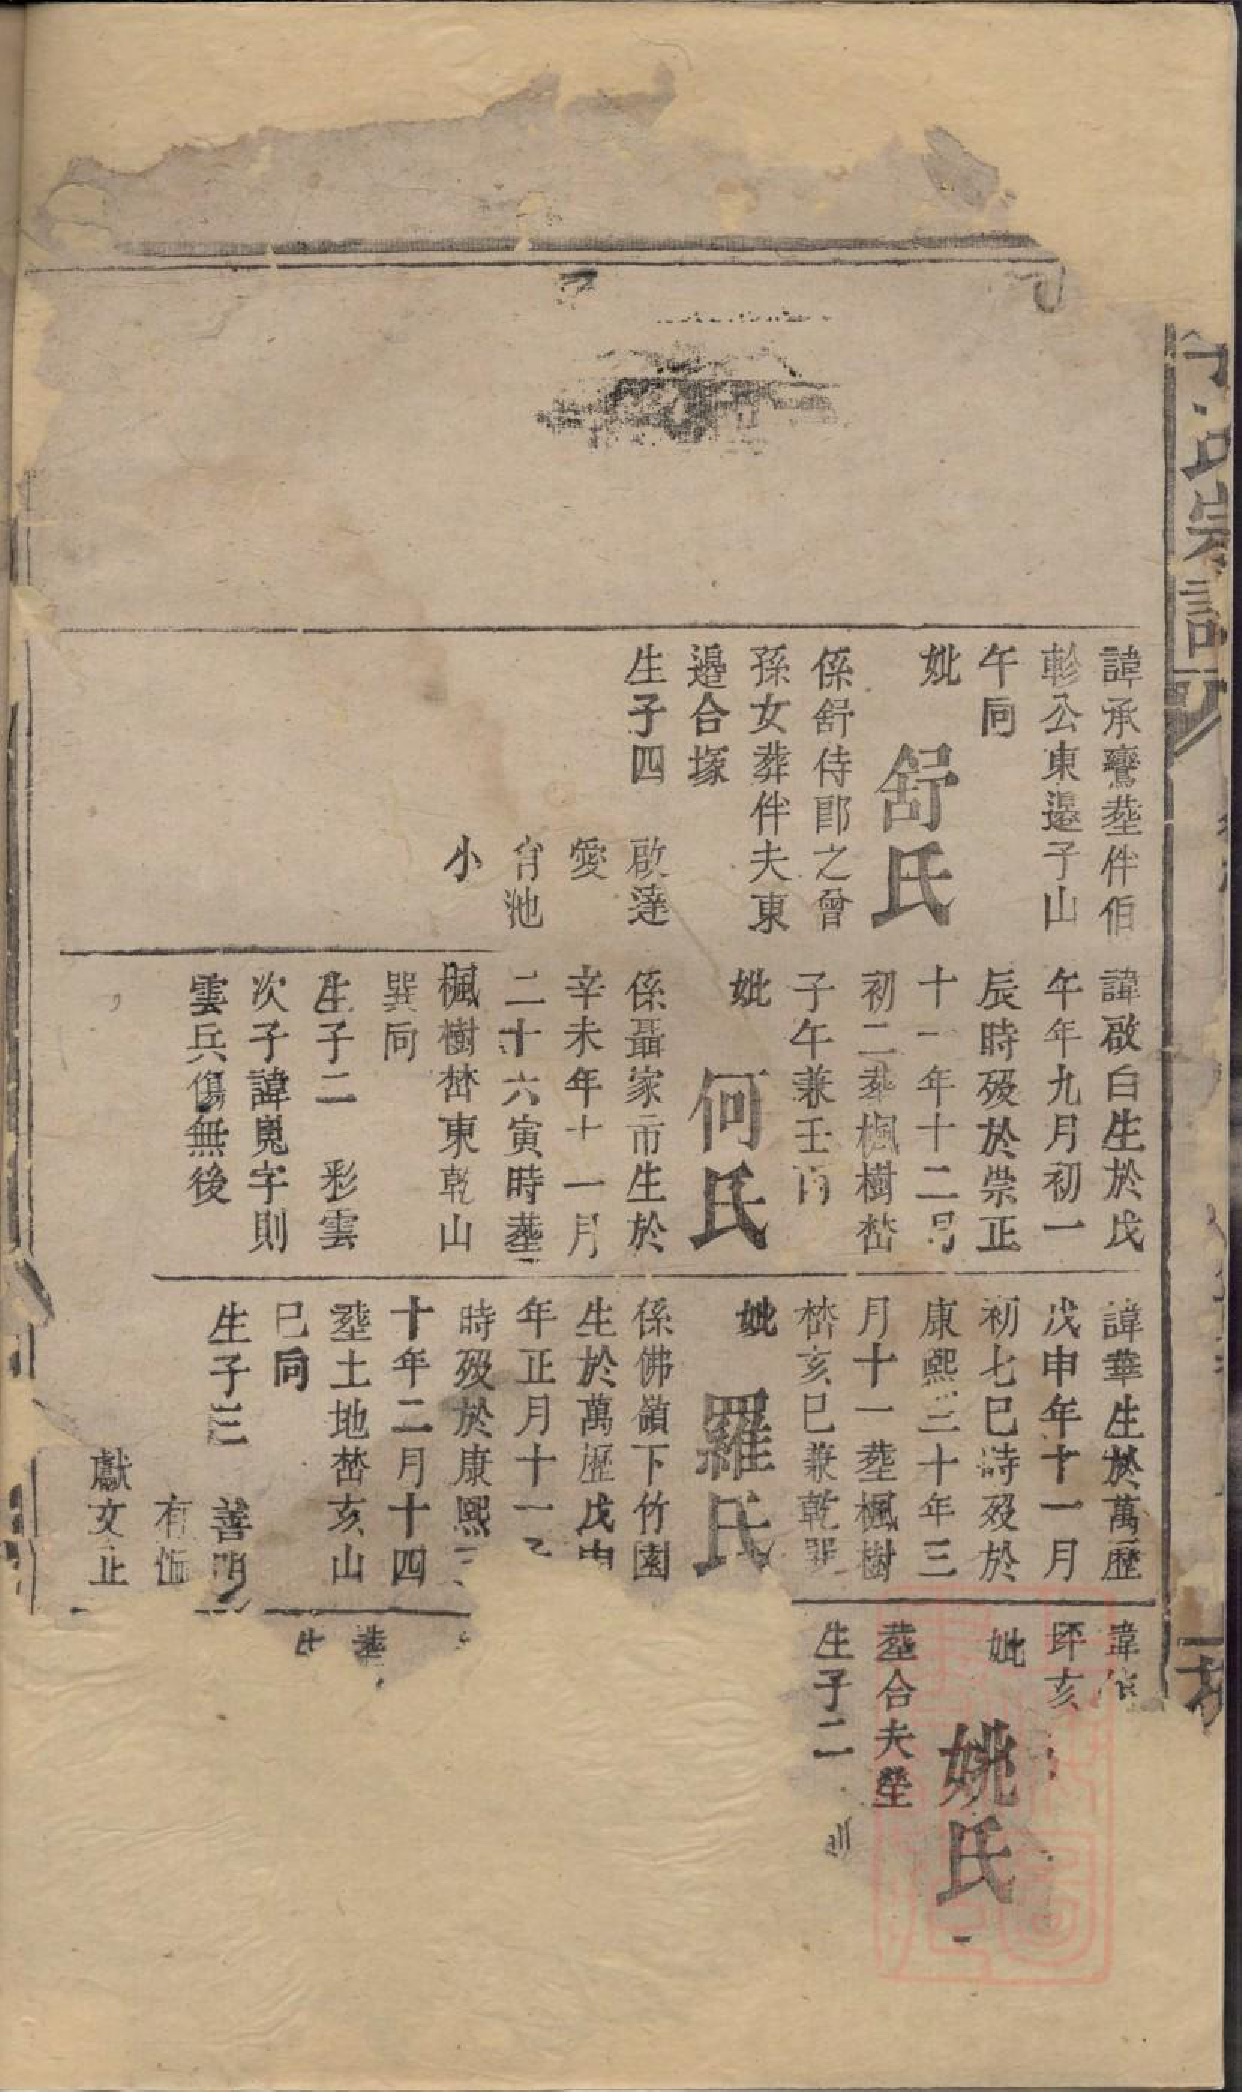 氏宗譜
諱承鸞塟伴伯
軫公東邊子山
午同
妣
舒氏
係舒侍郎之曾
孫女葬伴夫東
邉合塚
生子四 啟達
愛
池
小
諱啟白生於戊
午年九月初一
辰時殁於崇正
十一年十二月
初二葬楓樹嵆
子午兼壬丙
妣
何氏
係聶家市生於
辛未年十一月
二十六寅時塟
楓樹嵆東乾山
巽同
生子二 彩雲
次子諱鬼字則
雲兵傷無後
諱華生於萬歷
戊申年十一月
初七巳時殁於
康熙三十年三
月十一塟楓樹
嵆亥巳兼乾巽
妣
羅氏
係佛嶺下竹園
生於萬歷戊申
年正月十一
時殁於康熙
十年二月十四
塟土地嵆亥山
巳同
生子三 善
有恒
獻文止
諱
坪亥
妣
姚氏
塟合夫塋
生子二
塟